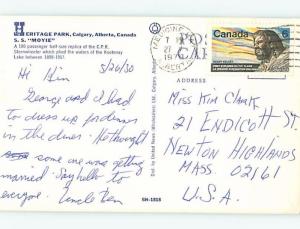 HERITAGE PARK, Calgary, Alberta, Canada
S. S. "MOYIE"
A 100 passenger half-size replica of the C.P.R.
Sternwheeler which plied the waters of the Kootenay
Lake between 1898-1957.
5/26/30
Hi Kim
George and I had
to dress up for dinner
in the diner. He thought
some one was getting
married. Say hello to
everyone. Uncle Ben
SH-1818
Canada 6
ADDRESS
Miss Kim Clark
21 Endicott St
Newton Highlands
Mass 02161
U.S.A.